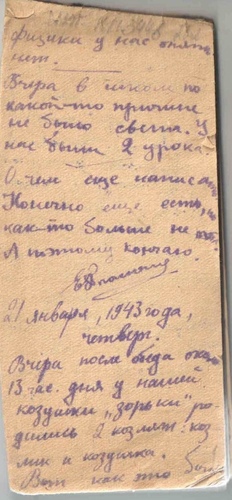 физики у нас опять
нет.
Вчера в школе по
какой-то причине
не было света. У
нас были 2 урока.
О чем еще написать
Конечно еще есть, но
как-то больше не
А поэтому кончаю.
21 января, 1943 года,
четверг.
Вчера после обеда около
13 час. дня у нашей
козушки „зорьки" ро-
дились 2 козлят: коз-
лик и козушка.
Вот как это было